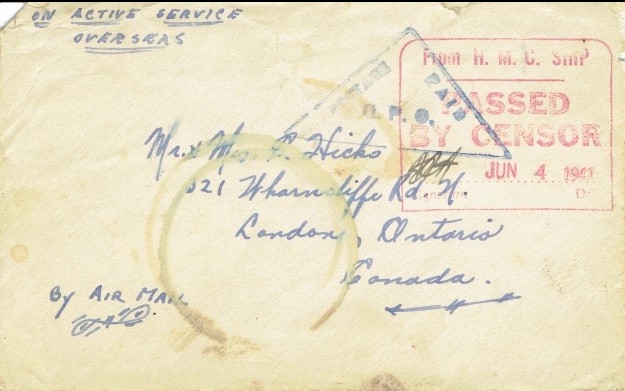 ON ACTIVE SERVICE
OVERSEAS
From H. M. C. SHIP
PASSED
BY CENSOR
JUN 4 1941
POSTAGE PAID
Mr. & Mrs. F. Hicks
321 Wharncliffe Rd N.
London, Ontario
Canada.
By AIR MAIL